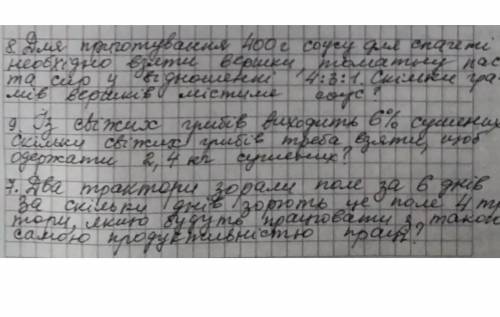 8. Для приготування 400 г соусу для спагеті
необхідно взяти вершки, томатну пас
та сир у відношенні 4:3:1. Скільки гра
мів вершків містиме соус?
9. Із свіжих грибів виходить 6% сушених
скільки свіжих грибів треба взяти, щоб
одержати 2,4 кг сушених?
7. Два трактори зорали поле за 6 днів
За скільки днів зорють це поле 4 тр
тори, якщо будуть працювати з такою
самою продуктивністю праці?